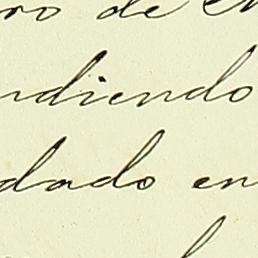 ro de
ndiendo
dado en